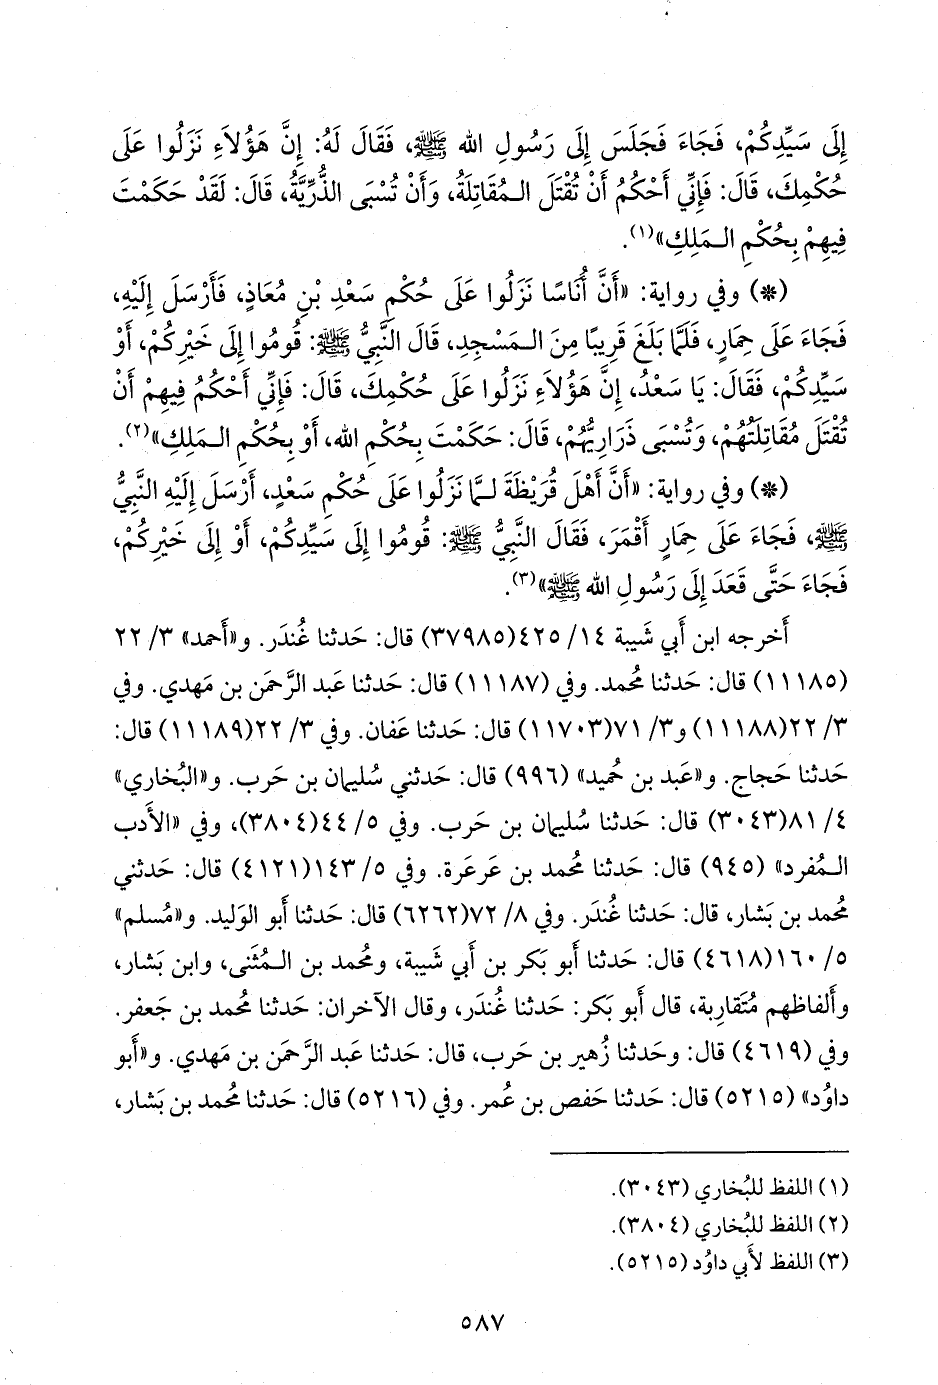 إِلَى سَيِّدِكُمْ، فَجَاءَ فَجَلَسَ إِلَى رَسُولِ الله ﷺ، فَقَالَ لَهُ: إِنَّ هَؤُلاَءِ نَزَلُوا عَلَى
حُكْمِكَ، قَالَ: فَإِنِّي أَحْكُمُ أَنْ تُقْتَلَ الـمُقَاتِلَةُ، وَأَنْ تُسْبَى الذُّرِّيَّةُ، قَالَ: لَقَدْ حَكَمْتَ
فِيهِمْ بِحُكْمِ الـمَلِكِ»(١).
(*) وفي رواية: «أَنَّ أُنَاسًا نَزَلُوا عَلَى حُكْمِ سَعْدِ بْنِ مُعَاذٍ، فَأَرْسَلَ إِلَيْهِ،
فَجَاءَ عَلَى حِمَارٍ، فَلَمَّا بَلَغَ قَرِيبًا مِنَ الـمَسْجِدِ، قَالَ النَّبِيُّ ﷺ: قُومُوا إِلَى خَيْرِكُمْ، أَوْ
سَيِّدِكُمْ، فَقَالَ: يَا سَعْدُ، إِنَّ هَؤُلاَءِ نَزَلُوا عَلَى حُكْمِكَ، قَالَ: فَإِنِّي أَحْكُمُ فِيهِمْ أَنْ
تُقْتَلَ مُقَاتِلَتُهُمْ، وَتُسْبَى ذَرَارِيُّهُمْ، قَالَ: حَكَمْتَ بِحُكْمِ الله، أَوْ بِحُكْمِ الـمَلِكِ»(٢).
(*) وفي رواية: «أَنَّ أَهْلَ قُرَيْظَةَ لَـمَّا نَزَلُوا عَلَى حُكْمِ سَعْدٍ، أَرْسَلَ إِلَيْهِ النَّبِيُّ
ﷺ، فَجَاءَ عَلَى حِمَارٍ أَقْمَرَ، فَقَالَ النَّبِيُّ ﷺ: قُومُوا إِلَى سَيِّدِكُمْ، أَوْ إِلَى خَيْرِكُمْ،
فَجَاءَ حَتَّى قَعَدَ إِلَى رَسُولِ الله ﷺ»(٣).
أَخرجه ابن أَبي شَيبة ١٤/ ٤٢٥(٣٧٩٨٥) قال: حَدثنا غُندَر. و«أَحمد» ٣/ ٢٢
(١١١٨٥) قال: حَدثنا مُحمد. وفي (١١١٨٧) قال: حَدثنا عَبد الرَّحمَن بن مَهدي. وفي
٣/ ٢٢(١١١٨٨) و٣/ ٧١(١١٧٠٣) قال: حَدثنا عَفان. وفي ٣/ ٢٢(١١١٨٩) قال:
حَدثنا حَجاج. و«عَبد بن حُميد» (٩٩٦) قال: حَدثني سُليمان بن حَرب. و«البُخاري»
٤/ ٨١(٣٠٤٣) قال: حَدثنا سُليمان بن حَرب. وفي ٥/ ٤٤(٣٨٠٤)، وفي «الأَدب
الـمُفرد» (٩٤٥) قال: حَدثنا مُحمد بن عَرعَرة. وفي ٥/ ١٤٣(٤١٢١) قال: حَدثني
مُحمد بن بَشار، قال: حَدثنا غُندَر. وفي ٨/ ٧٢(٦٢٦٢) قال: حَدثنا أَبو الوَليد. و«مُسلم»
٥/ ١٦٠(٤٦١٨) قال: حَدثنا أَبو بَكر بن أَبي شَيبة، ومُحمد بن الـمُثنى، وابن بَشار،
وأَلفاظهم مُتَقاربة، قال أَبو بَكر: حَدثنا غُندَر، وقال الآخران: حَدثنا مُحمد بن جَعفر.
وفي (٤٦١٩) قال: وحَدثنا زُهير بن حَرب، قال: حَدثنا عَبد الرَّحمَن بن مَهدي. و«أَبو
داوُد» (٥٢١٥) قال: حَدثنا حَفص بن عُمر. وفي (٥٢١٦) قال: حَدثنا مُحمد بن بَشار،
(١) اللفظ للبُخاري (٣٠٤٣).
(٢) اللفظ للبُخاري (٣٨٠٤).
(٣) اللفظ لأَبي داوُد (٥٢١٥).
٥٨٧